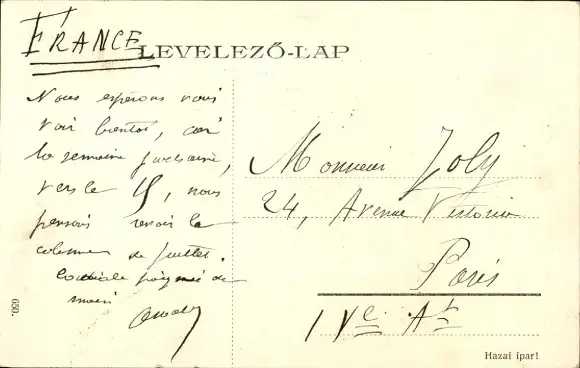 FRANCE
LEVELEZŐ-LAP
Nous espérons vous
voir bientôt, car
la semaine prochaine,
vers le 15, nous
pensons revoir la
colonne de Juillet.
Cordiale poignée de
main
Monsieur Joly
24, Avenue Victoria
Paris
IVe Art
650.
Hazai ipar!